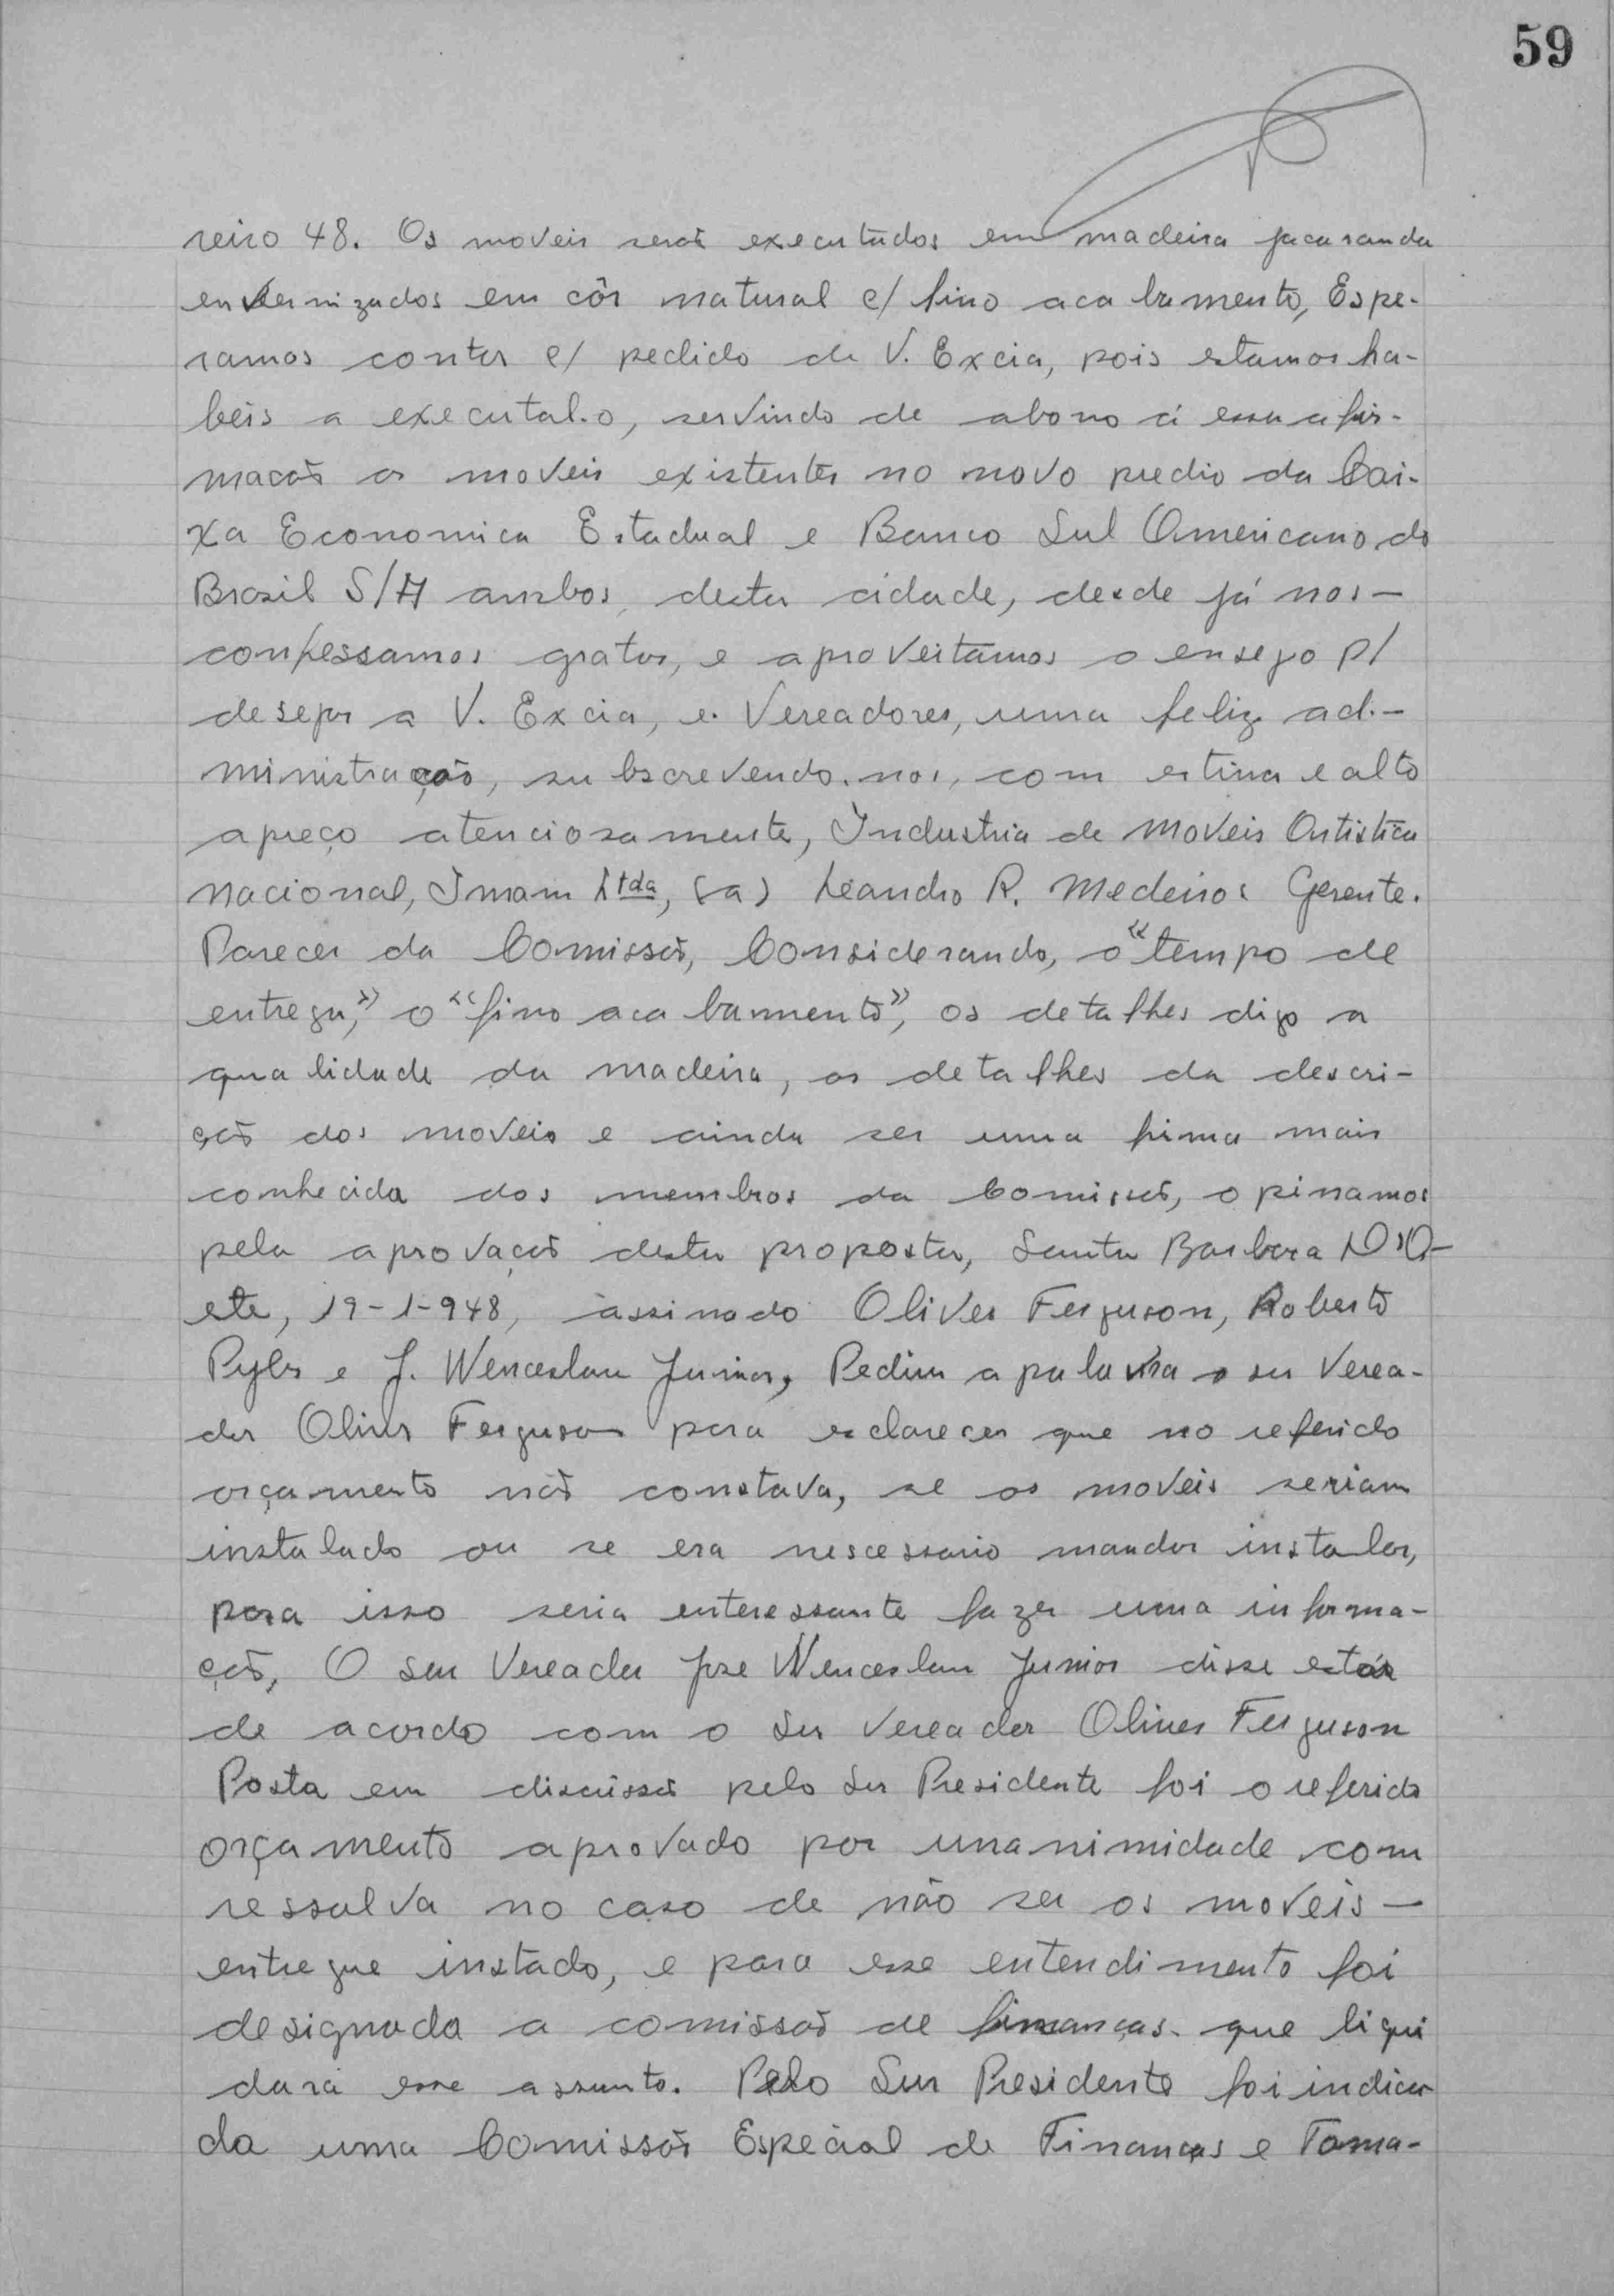 59
reiro 48. Os moveis serão executados em madeira jacaranda
envernizados em côr natural c/ fino acabamento, Espe-
ramos contar c/ pedido de V. Excia, pois estamos ha-
beis a executal-o, servindo de abono á essa afir-
macão os moveis existentes no novo predio da Cai-
xa Economica Estadual e Banco Sul Americano do
Brasil S/A ambos, desta cidade, desde já nos -
confessamos gratos, e aproveitamos o ensejo p/
desejar a V. Excia, e. Vereadores, uma feliz ad.-
ministração, subscrevendo-nos, com estima e alto
apreço atenciosamente, Industria de Moveis Artistica
Nacional, Imam Ltda, (a) Leandro R. Medeiros Gerente.
Parecer da Comissão, Considerando, o "tempo de
entrega," o "fino acabamento", os detalhes digo a
qualidade da madeira, os detalhes da descri-
ção dos moveis e ainda ser uma firma mais
conhecida dos membros da Comissão, opinamos
pela aprovação desta proposta, Santa Barbara D'O-
este, 19-1-948, assinado Oliver Ferguson, Roberto
Pyles e J. Wenceslau Junior, Pediu a palavra o snr Verea-
dor Oliver Ferguson para esclarecer que no referido
orçamento não constava, se os moveis seriam
instalado ou se era nescessario mandar instalar,
para isso seria enteressante fazer uma informa-
ção, O Snr Vereador Jose Wenceslau Junior disse estar
de acordo com o Snr Vereador Oliver Ferguson
Posta em discussão pelo Snr Presidente foi o referido
orçamento aprovado por unanimidade com
ressalva no caso de não ser os moveis -
entregue instado, e para esse entendimento foi
designada a comissão de finanças. que liqui
dara esse assunto. Pelo Snr Presidente foi indica
da uma Comissão Especial de Finanças e Toma-